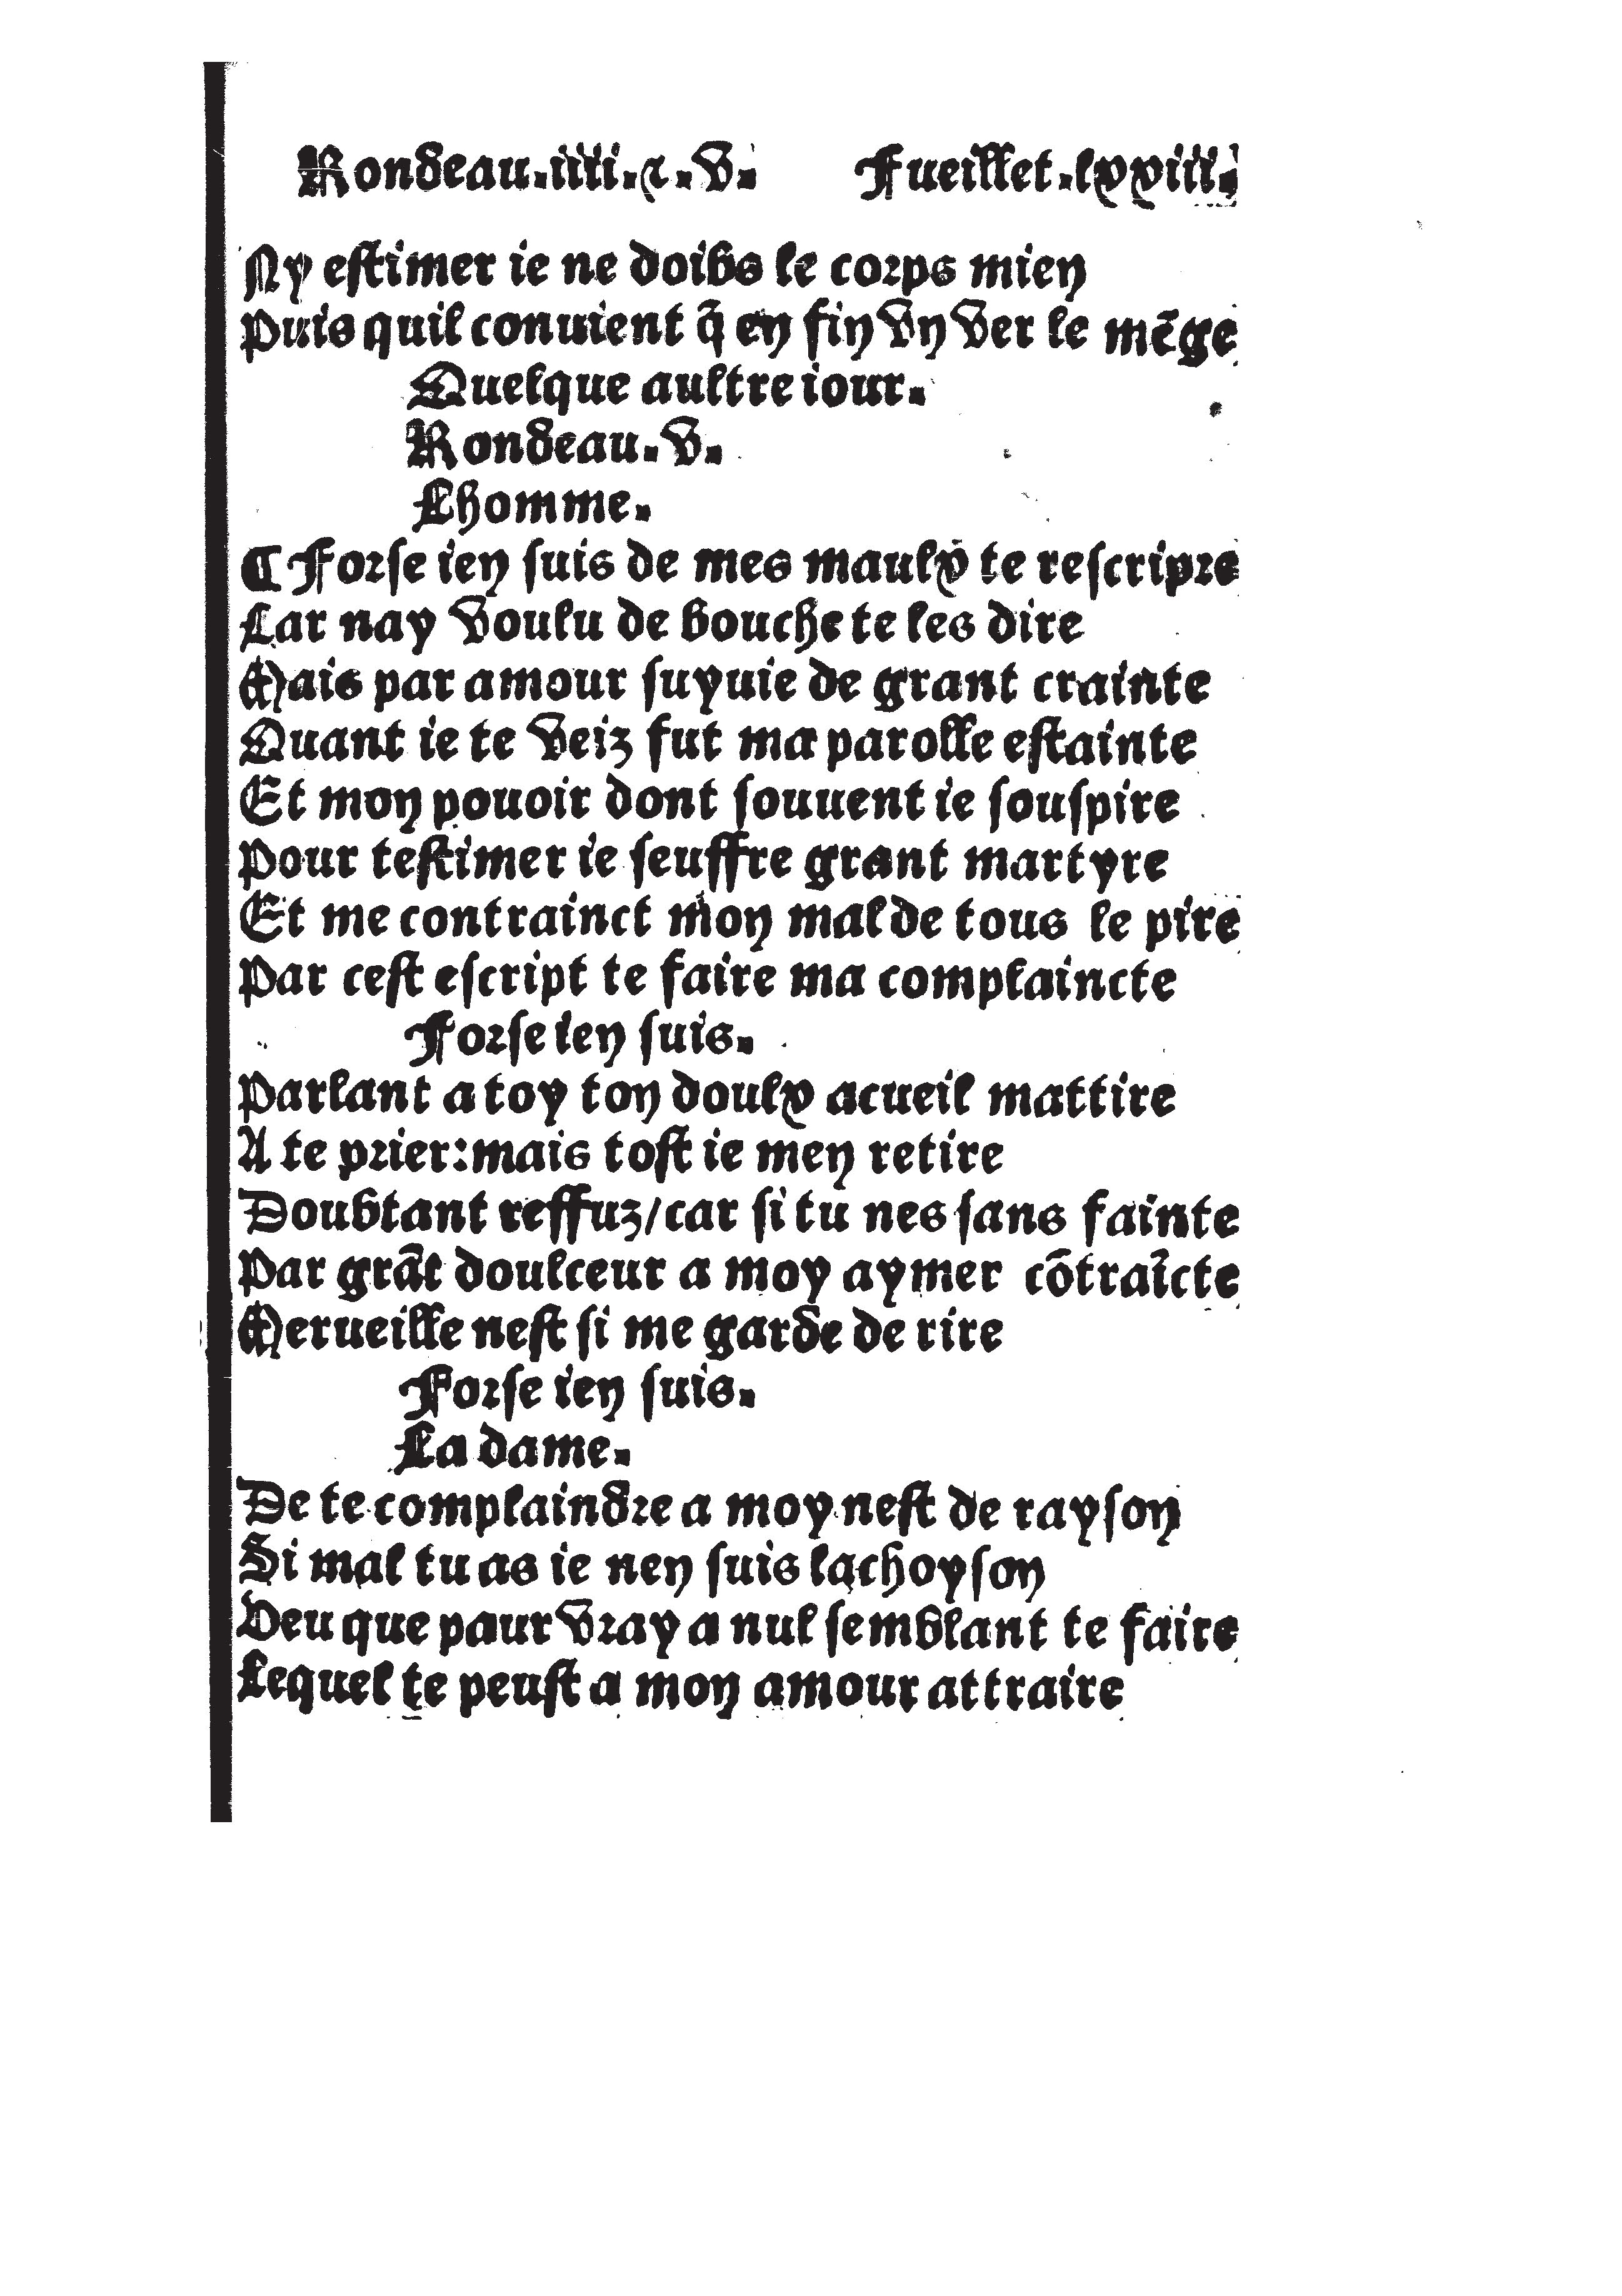 Rondeau.iiii.⁊.V. Fueillet.lxxiii.
Ny estimer ie ne doibs le corps mien
Puis quil conuient q̃ en fin vn ver le mẽge
Quelque aultre iour.
Rondeau.V.
Lhomme.
¶ Forse ien suis de mes maulx te rescripre
Car nay voulu de bouche te les dire
Mais par amour suyuie de grant crainte
Quant ie te veiz fut ma parolle estainte
Et mon pouoir dont souuent ie souspire
Pour testimer ie seuffre grant martyre
Et me contrainct mon mal de tous le pire
Par cest escript te faire ma complaincte
Forse ien suis.
Parlant a toy ton doulx acueil mattire
A te prier:mais tost ie men retire
Doubtant reffuz/car si tu nes sans fainte
Par grãt doulceur a moy aymer cõtraĩcte
Merueille nest si me garde de rire
Forse ien suis.
La dame.
De te complaindre a moy nest de rayson
Si mal tu as ie nen suis lachoyson
Veu que paur vray a nul semblant te faire
Lequel te peust a mon amour attraire